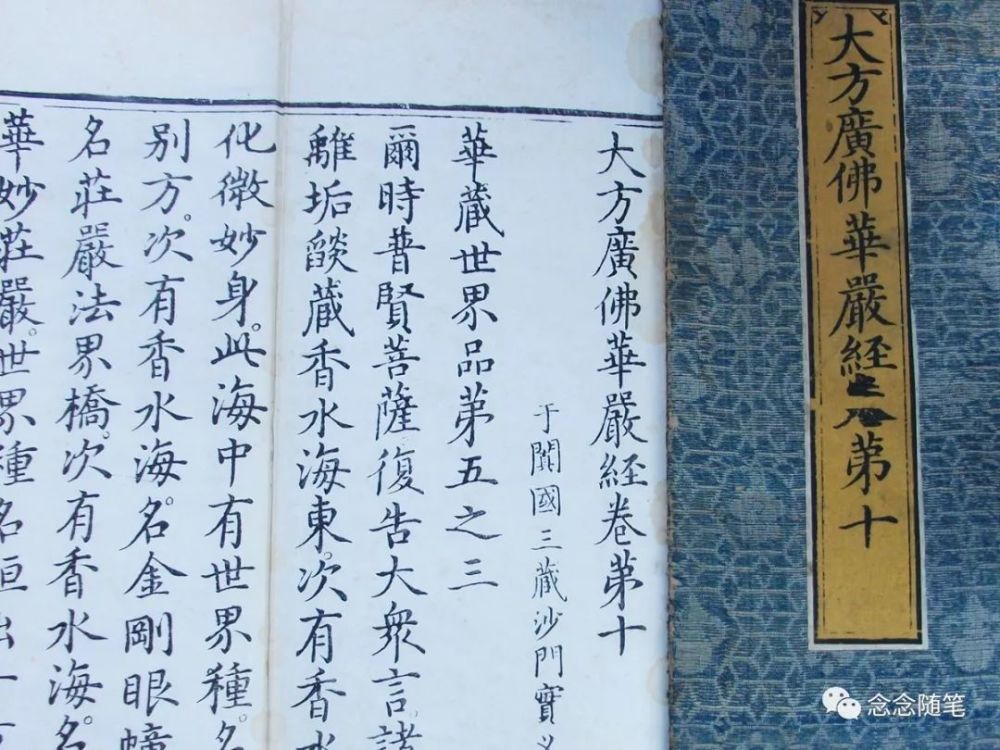 大方廣佛華嚴経苐十
大方廣佛華嚴経卷苐十
于闐國三藏沙門實
華藏世界品苐五之三
爾時普賢菩薩復告大衆言諸
離垢燄藏香水海東。次有香水
化微妙身。此海中有世界種。名
别方。次有香水海。名金剛眼幢
名莊嚴法界橋。次有香水海。名
華妙莊嚴。世界種名恒出十
念念随笔